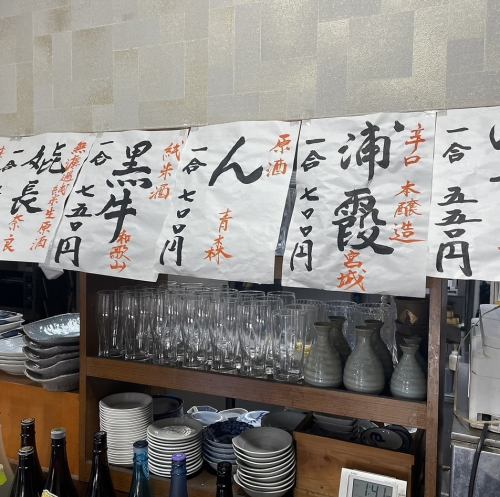 一合 五五〇円
辛口 本醸造
浦霞
宮城
一合 七〇〇円
原酒
ん
青森
一合 七〇〇円
純米酒
黒牛
和歌山
一合 七五〇円
無濾過純米生原酒
嬉長
奈良
一合